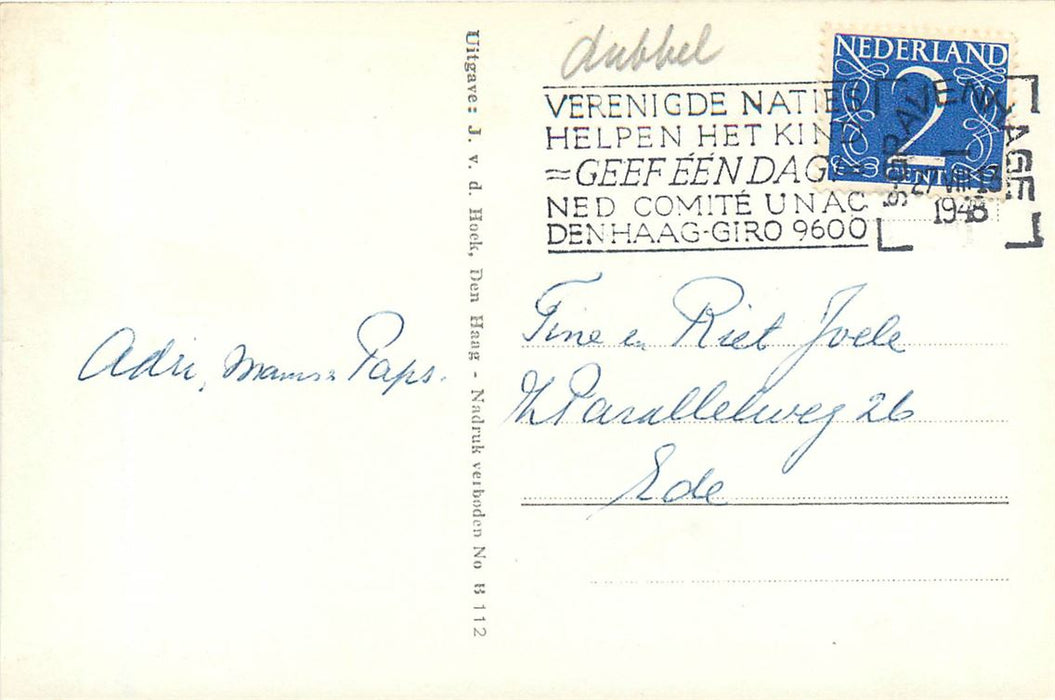 dubbel
NEDERLAND
2
CENT
VERENIGDE NATIES
HELPEN HET KIND
=GEEF ÉÉN DAG!=
NED COMITÉ UNAC
DENHAAG-GIRO 9600
'S-GRAVENHAGE
1
27 VIII
1948
Uitgave: J. v. d. Hoek, Den Haag - Nadruk verboden No B 112
Adri, Mams en Paps.
Tine en Riet Joele
Parallelweg 26
Ede